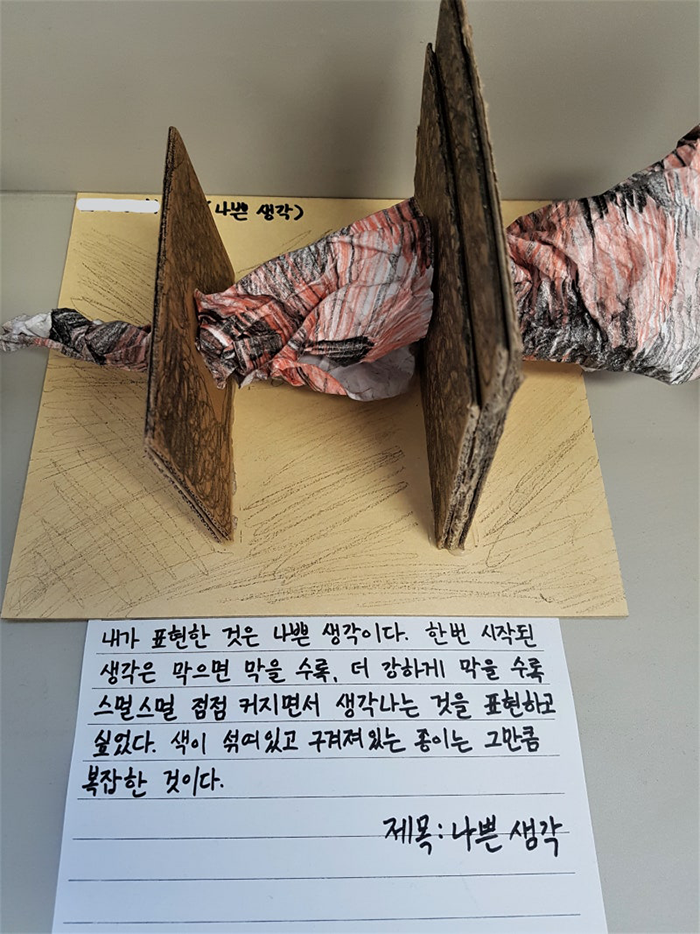 (나쁜 생각)
내가 표현한 것은 나쁜 생각이다. 한번 시작된
생각은 막으면 막을 수록, 더 강하게 막을 수록
스멀스멀 점점 커지면서 생각나는 것을 표현하고
싶었다. 색이 섞여있고 구겨져있는 종이는 그만큼
복잡한 것이다.
제목: 나쁜 생각